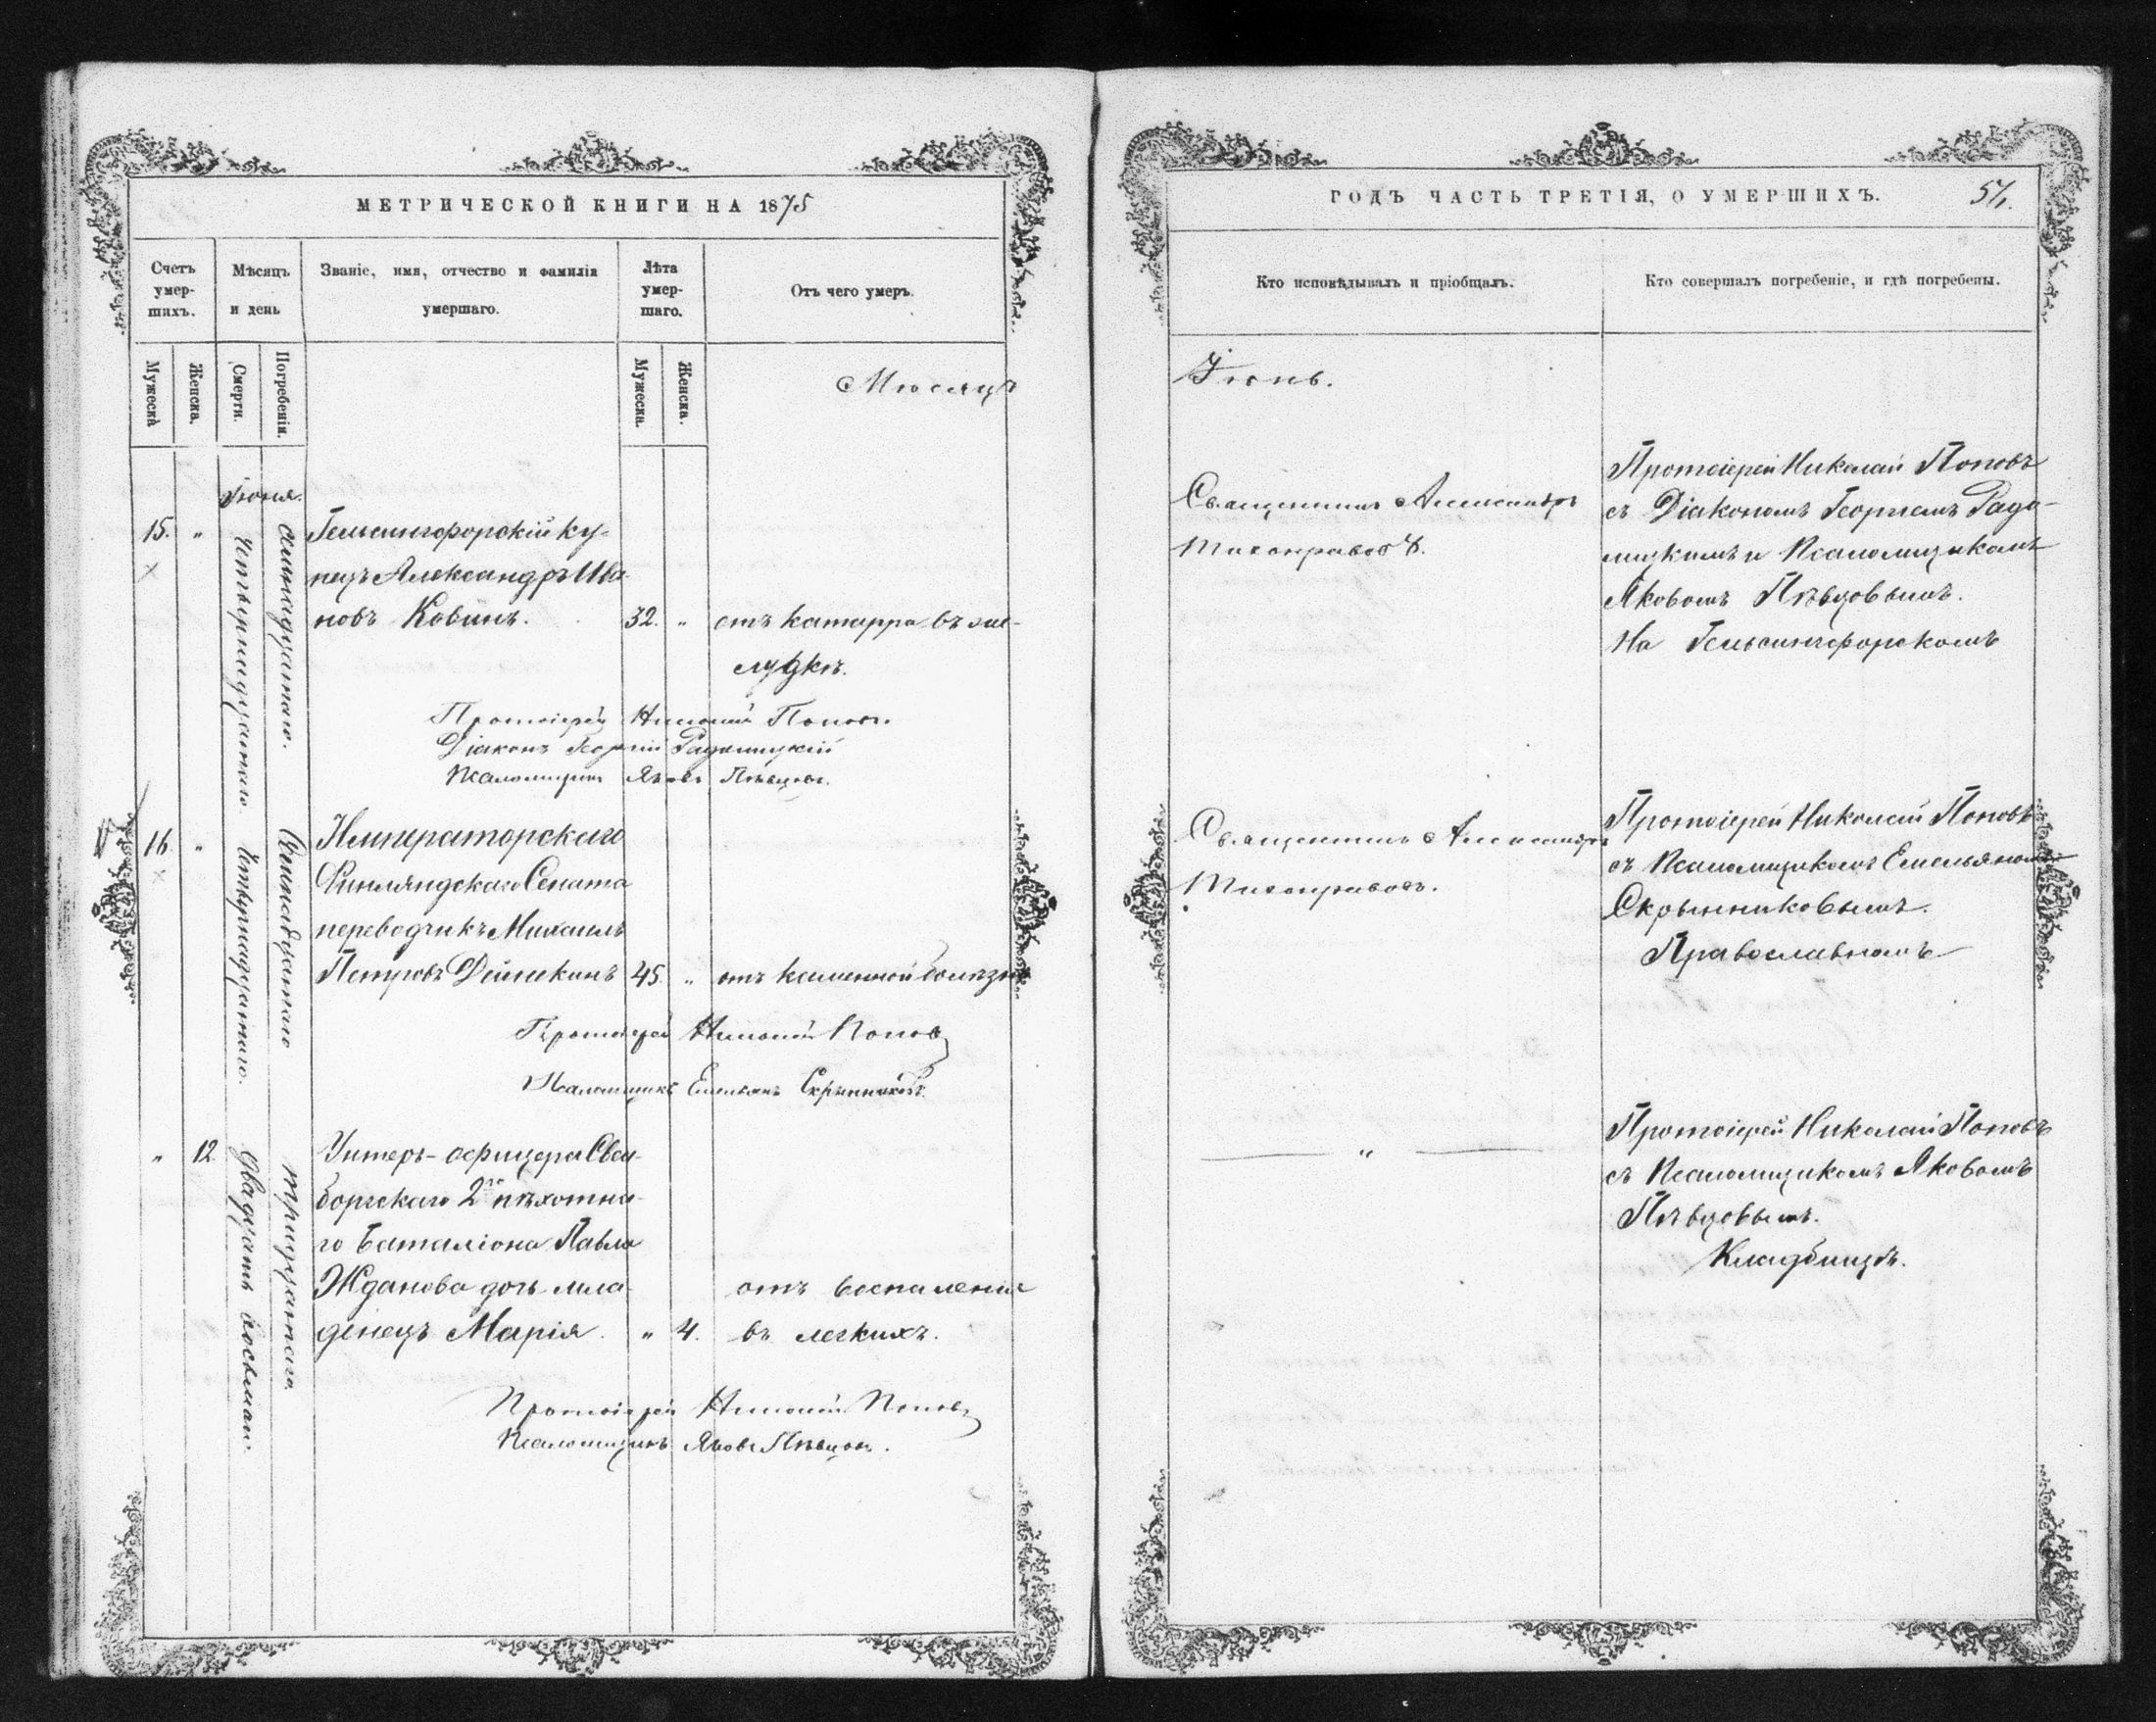 МЕТРИЧЕСКОЙ КНИГИ НА 1875
Счетъ умершихъ.
Мѣсяцъ и день
Званіе, имя, отчество и фамилія умершаго.
Лѣта умершаго.
Отъ чего умеръ.
Мужеска
Женска.
Смерти.
Погребенія.
Мужеска.
Женска.
Мѣсяцъ
Іюня.
15. „
Четырнадцатаго.
Гельсингфорскій ку-
пецъ Александръ Ива
новъ Ковинъ. 32. „ отъ катарра въ же-
лудкѣ.
Протоіерей Николай Поповъ.
Діаконъ Георгій Радолицкій
Псаломщикъ Яковъ Пѣвцовъ.
16. „
Четырнадцатаго.
Императорскаго
Финляндскаго Сената
переводчикъ Михаилъ
Петровъ 45. „ отъ каменной болѣзни
Протоіерей Николай Поповъ
Псаломщикъ Емельянъ Скрынниковъ.
„ 12
Двадцать восьмаго.
тридцатаго.
Унтеръ-офицера Свеа-
боргскаго 2го пѣхотна-
го баталіона Павла
Жданова дочь мла-
денецъ Марія. „ 4.
отъ воспаленія
въ легкихъ.
Протоіерей Николай Поповъ
Псаломщикъ Яковъ Пѣвцовъ.
ГОДЪ ЧАСТЬ ТРЕТІЯ, О УМЕРШИХЪ.
Кто исповѣдывалъ и пріобщалъ.
Кто совершалъ погребеніе, и гдѣ погребены.
Іюнь.
Священникъ Александръ
Тихонравовъ.
Протоіерей Николай Поповъ
съ Діакономъ Георгіемъ Радо-
лицкимъ и Псаломщикомъ
Яковомъ Пѣвцовымъ.
На Гельсингфорскомъ
Священникъ Александръ
Тихонравовъ.
Протоіерей Николай Поповъ
съ Псаломщикомъ Емельяномъ
Скрынниковымъ.
Православномъ
„
Протоіерей Николай Поповъ
съ Псаломщикомъ Яковомъ
Пѣвцовымъ.
Кладбищѣ.